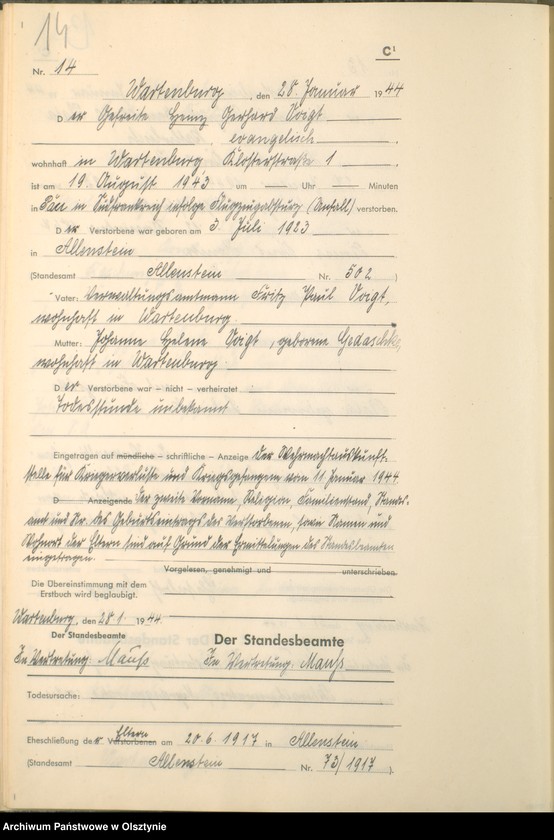 14
C¹
Nr. 14
Wartenburg, den 28. Januar 1944
Der Gefreite Heinz Gerhard Voigt
evangelisch
wohnhaft in Wartenburg, Klosterstraße 1
ist am 19. August 1943 um — Uhr — Minuten
in in Südfrankreich infolge Flugzeugabsturz (Unfall) verstorben.
Der Verstorbene war geboren am 3. Juli 1923
in Allenstein
(Standesamt Allenstein Nr. 502)
Vater: Verwaltungsamtmann Fritz Paul Voigt,
wohnhaft in Wartenburg.
Mutter: Johanne Helene Voigt, geborene
wohnhaft in Wartenburg.
Der Verstorbene war – nicht – verheiratet
Todesstunde unbekannt
Eingetragen auf mündliche – schriftliche – Anzeige der Wehrmachtauskunft-
stelle für Kriegerverluste und Kriegsgefangene vom 11. Januar 1944.
D Anzeigende Der zweite Vorname, Religion, Familienstand, Standes-
amt und Nr. des Geburtseintrags des Verstorbenen, sowie Namen und
Wohnort der Eltern sind auf Grund der Ermittelungen des Standesbeamten
eingetragen.
Vorgelesen, genehmigt und unterschrieben.
Die Übereinstimmung mit dem
Erstbuch wird beglaubigt.
Wartenburg, den 28.1. 1944
Der Standesbeamte Der Standesbeamte
In Vertretung: In Vertretung:
Todesursache:
Eheschließung der Eltern Verstorbenen am 20.6.1917 in Allenstein
(Standesamt Allenstein Nr. 73/1917).
Archiwum Państwowe w Olsztynie